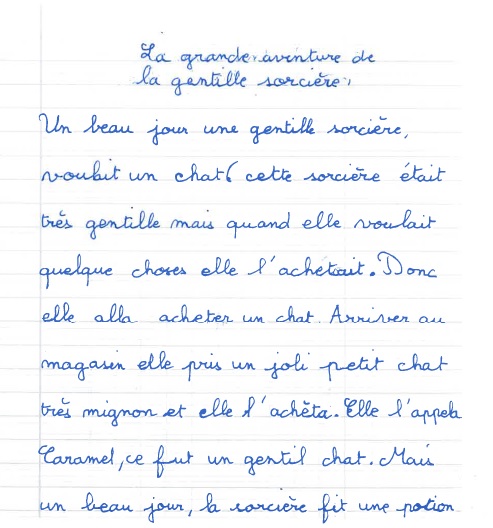 La grande aventure de
la gentille sorcière.
Un beau jour une gentille sorcière,
voulait un chat( cette sorcière était
très gentille mais quand elle voulait
quelque choses elle l'achetait. Donc
elle alla acheter un chat. Arriver au
magasin elle pris un joli petit chat
très mignon et elle l'achèta. Elle l'appela
Caramel, ce fut un gentil chat. Mais
un beau jour, la sorcière fit une potion